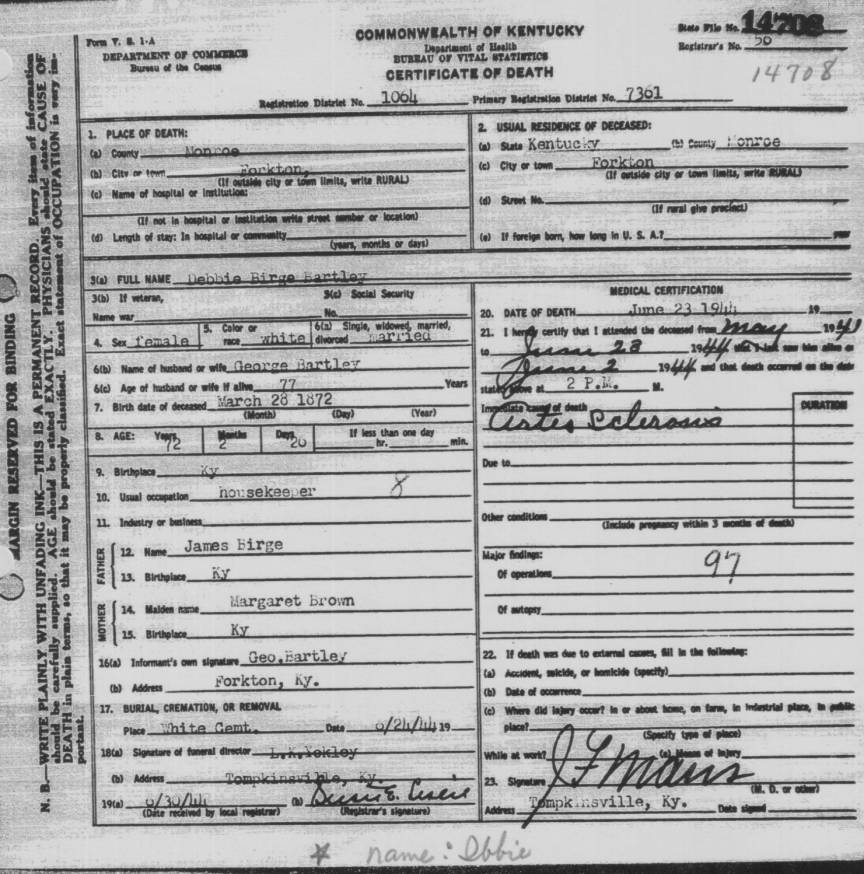 COMMONWEALTH OF KENTUCKY
State File No. 14708
Form V. S. 1-A
Department of Health
Registrar's No. 50
DEPARTMENT OF COMMERCE
BUREAU OF VITAL STATISTICS
Bureau of the Census
CERTIFICATE OF DEATH
14708
Registration District No. 1064 Primary Registration District No. 7361
1. PLACE OF DEATH:
(a) County Monroe
(b) City or town Forkton,
(If outside city or town limits, write RURAL)
(c) Name of hospital or institution:
(If not in hospital or institution write street number or location)
(d) Length of stay: In hospital or community
(years, months or days)
2. USUAL RESIDENCE OF DECEASED:
(a) State Kentucky (b) County Monroe
(c) City or town Forkton
(If outside city or town limits, write RURAL)
(d) Street No.
(If rural give precinct)
(e) If foreign born, how long in U. S. A.? year
3(a) FULL NAME Debbie Birge Bartley
3(b) If veteran,
Name war
3(c) Social Security
No.
4. Sex female
5. Color or race white
6(a) Single, widowed, married, divorced married
6(b) Name of husband or wife George Bartley
6(c) Age of husband or wife if alive 77 Years
7. Birth date of deceased March 28 1872
(Month) (Day) (Year)
8. AGE: Years 72 Months 2 Days 26 If less than one day hr. min.
9. Birthplace Ky
10. Usual occupation housekeeper 8
11. Industry or business
FATHER
12. Name James Birge
13. Birthplace Ky
MOTHER
14. Maiden name Margaret Brown
15. Birthplace Ky
16(a) Informant's own signature Geo.Bartley
(b) Address Forkton, Ky.
17. BURIAL, CREMATION, OR REMOVAL
Place White Cemt. Date 6/24/44 19
18(a) Signature of funeral director L.K.Yokley
(b) Address Tompkinsville, Ky.
19(a) 6/30/44 (b)
(Date received by local registrar) (Registrar's signature)
MEDICAL CERTIFICATION
20. DATE OF DEATH June 23 1944 19
21. I hereby certify that I attended the deceased from May 1941
to June 23 1944 that I last saw him alive on
June 2 1944 and that death occurred on the date
stated above at 2 P.M. M.
Immediate cause of death
DURATION
Arteo Sclerosis
Due to
Other conditions
(Include pregnancy within 3 months of death)
Major findings:
97
Of operations
Of autopsy
22. If death was due to external causes, fill in the following:
(a) Accident, suicide, or homicide (specify)
(b) Date of occurrence
(c) Where did injury occur? In or about home, on farm, in industrial place, in public
place?
(Specify type of place)
While at work? (e) Means of injury
23. Signature J F Marrs
(M. D. or other)
Address Tompkinsville, Ky. Date signed
name: Ebbie
MARGIN RESERVED FOR BINDING
N. B.—WRITE PLAINLY WITH UNFADING INK—THIS IS A PERMANENT RECORD. Every item of information
should be carefully supplied. AGE should be stated EXACTLY. PHYSICIANS should state CAUSE OF
DEATH in plain terms, so that it may be properly classified. Exact statement of OCCUPATION is very im-
portant.